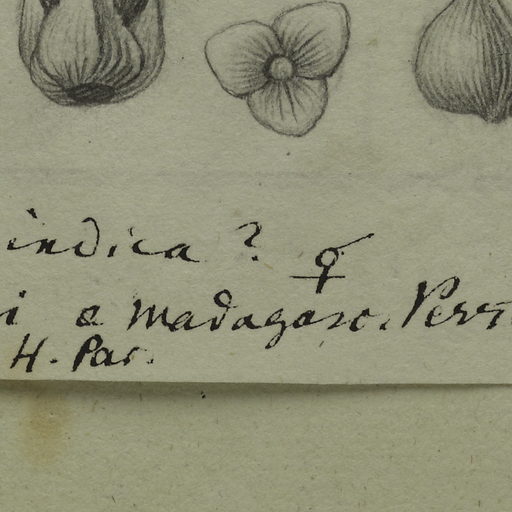 indica ? ♀
i e Madagasc. Perr
H. Par.